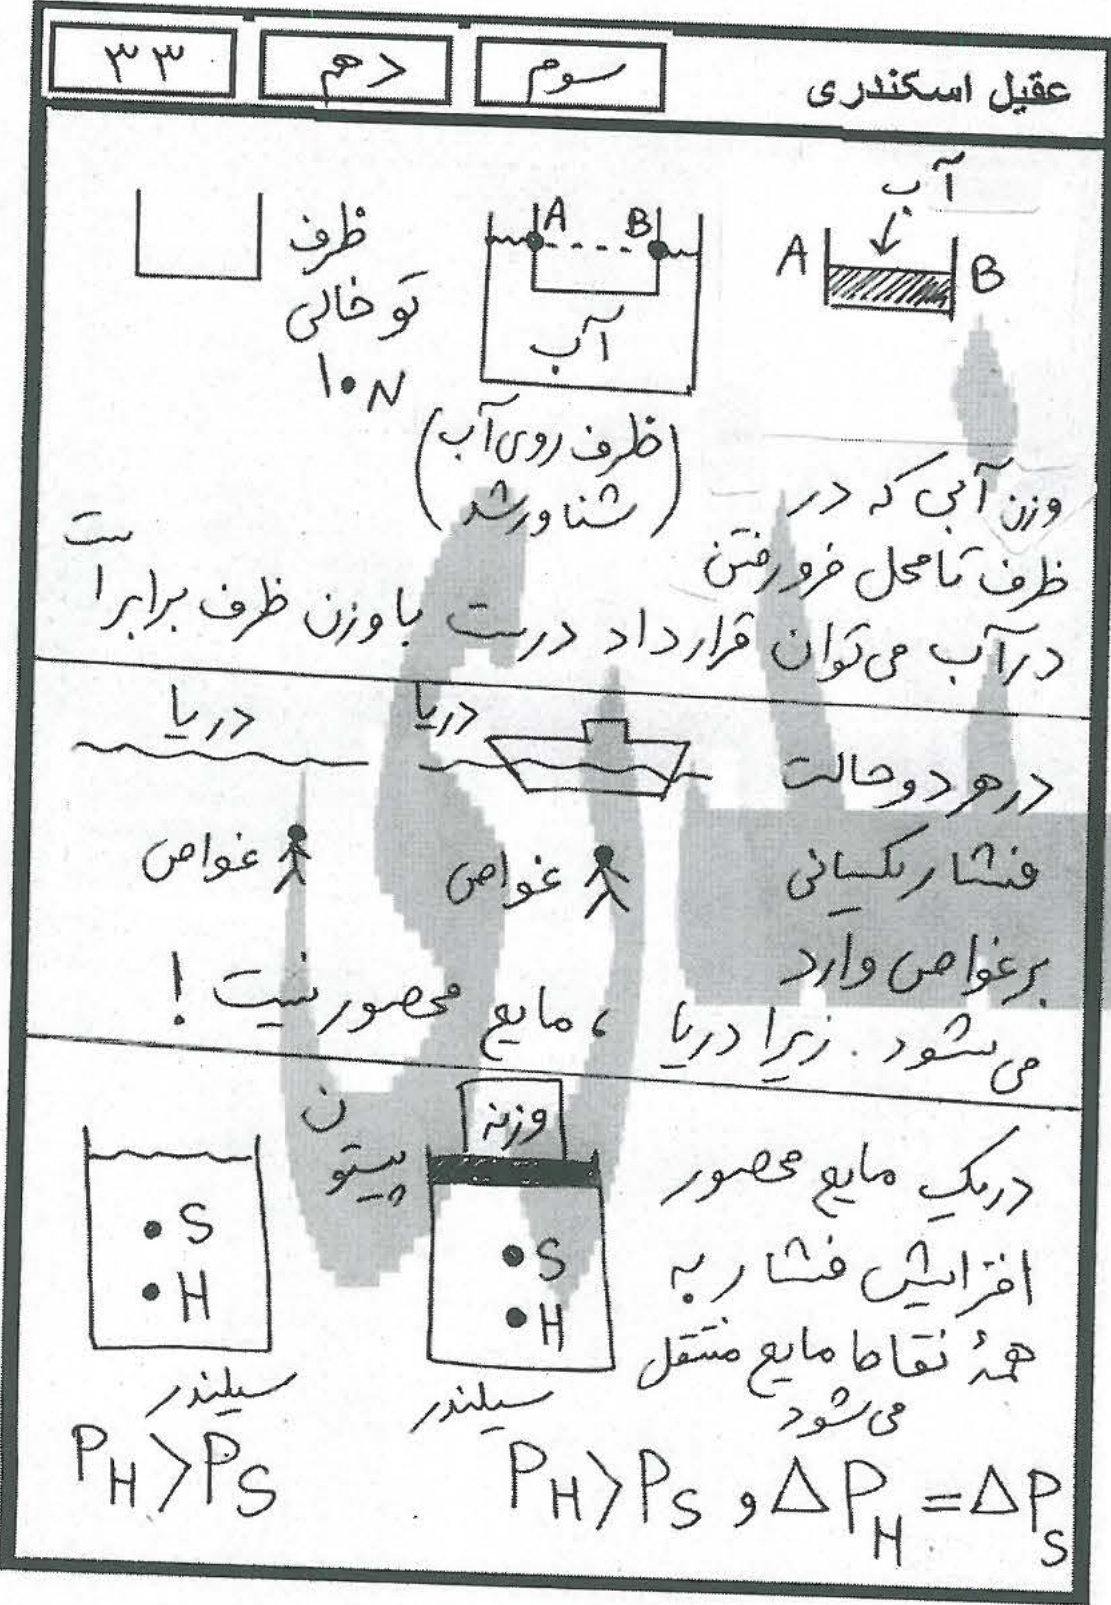 عقیل اسکندری
سوم
دهم
۳۳
آب
A
B
A
B
آب
(ظرف روی آب
شناور شد)
ظرف
تو خالی
۱۰N
وزن آبی که در
ظرف تا محل فرو رفتن
در آب می‌توان قرار داد درست با وزن ظرف برابر است
دریا
دریا
غواص
غواص
در هر دو حالت
فشار یکسانی
بر غواص وارد
می‌شود. زیرا دریا، مایع محصور نیست!
وزنه
پیستون
S
H
سیلندر
S
H
سیلندر
در یک مایع محصور
افزایش فشار به
همهٔ نقاط مایع منتقل
می‌شود
P_H > P_S و ΔP_H = ΔP_S
P_H > P_S